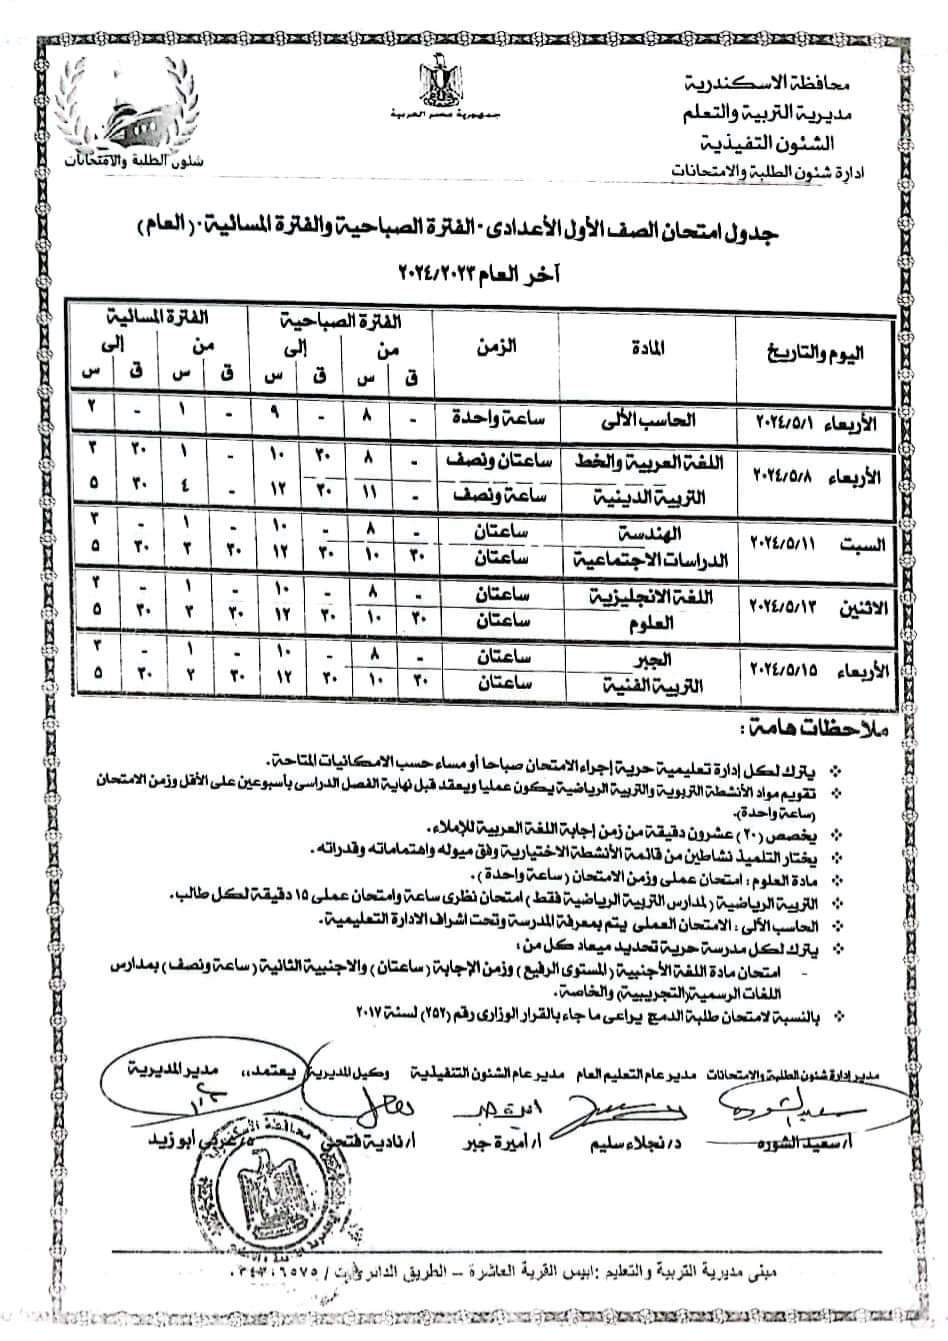 محافظة الاسكندرية
مديرية التربية والتعلم
الشئون التفيذية
ادارة شئون الطلبة والامتحانات
جمهورية مصر العربية
شئون الطلبة والامتحانات
جدول امتحان الصف الأول الأعدادى - الفترة الصباحية والفترة المسائية - (العام)
آخر العام ٢٠٢٤/٢٠٢٣
اليوم والتاريخ المادة الزمن الفترة الصباحية الفترة المسائية
من إلى من إلى
ق س ق س ق س ق س
الأربعاء ٢٠٢٤/٥/١ الحاسب الألى ساعة واحدة - ٨ - ٩ - ١ - ٢
الأربعاء ٢٠٢٤/٥/٨ اللغة العربية والخط ساعتان ونصف - ٨ ٣٠ ١٠ - ١ ٣٠ ٣
التربية الدينية ساعة ونصف - ١١ ٣٠ ١٢ - ٤ ٣٠ ٥
السبت ٢٠٢٤/٥/١١ الهندسة ساعتان - ٨ - ١٠ - ١ - ٣
الدراسات الاجتماعية ساعتان ٣٠ ١٠ ٣٠ ١٢ ٣٠ ٣ ٣٠ ٥
الاثنين ٢٠٢٤/٥/١٣ اللغة الانجليزية ساعتان - ٨ - ١٠ - ١ - ٣
العلوم ساعتان ٣٠ ١٠ ٣٠ ١٢ ٣٠ ٣ ٣٠ ٥
الأربعاء ٢٠٢٤/٥/١٥ الجبر ساعتان - ٨ - ١٠ - ١ - ٣
التربية الفنية ساعتان ٣٠ ١٠ ٣٠ ١٢ ٣٠ ٣ ٣٠ ٥
ملاحظات هامة :
يترك لكل إدارة تعليمية حرية إجراء الامتحان صباحا أو مساء حسب الامكانيات المتاحة.
تقويم مواد الأنشطة التربوية والتربية الرياضية يكون عمليا ويعقد قبل نهاية الفصل الدراسى بأسبوعين على الأقل وزمن الامتحان
(ساعة واحدة).
يخصص (٢٠) عشرون دقيقة من زمن إجابة اللغة العربية للإملاء.
يختار التلميذ نشاطين من قائمة الأنشطة الاختيارية وفق ميوله واهتماماته وقدراته.
مادة العلوم : امتحان عملى وزمن الامتحان (ساعة واحدة).
التربية الرياضية (لمدارس التربية الرياضية فقط) امتحان نظرى ساعة وامتحان عملى ١٥ دقيقة لكل طالب.
الحاسب الألى : الامتحان العملى يتم بمعرفة المدرسة وتحت اشراف الادارة التعليمية.
يترك لكل مدرسة حرية تحديد ميعاد كل من :
- امتحان مادة اللغة الأجنبية (المستوى الرفيع) وزمن الإجابة (ساعتان) والاجنبية الثانية (ساعة ونصف) بمدارس
اللغات الرسمية (التجريبية) والخاصة.
بالنسبة لامتحان طلبة الدمج يراعى ما جاء بالقرار الوزارى رقم (٢٥٢) لسنة ٢٠١٧
مدير ادارة شئون الطلبة والامتحانات مدير عام التعليم العام مدير عام الشئون التنفيذية وكيل المديرية يعتمد،، مدير المديرية
أ/ سعيد الشوره د/ نجلاء سليم أ/ أميرة جبر أ/ نادية فتحى عربى أبو زيد
محافظة الاسكندرية
مبنى مديرية التربية و التعليم : ابيس القرية العاشرة – الطريق الدائرى